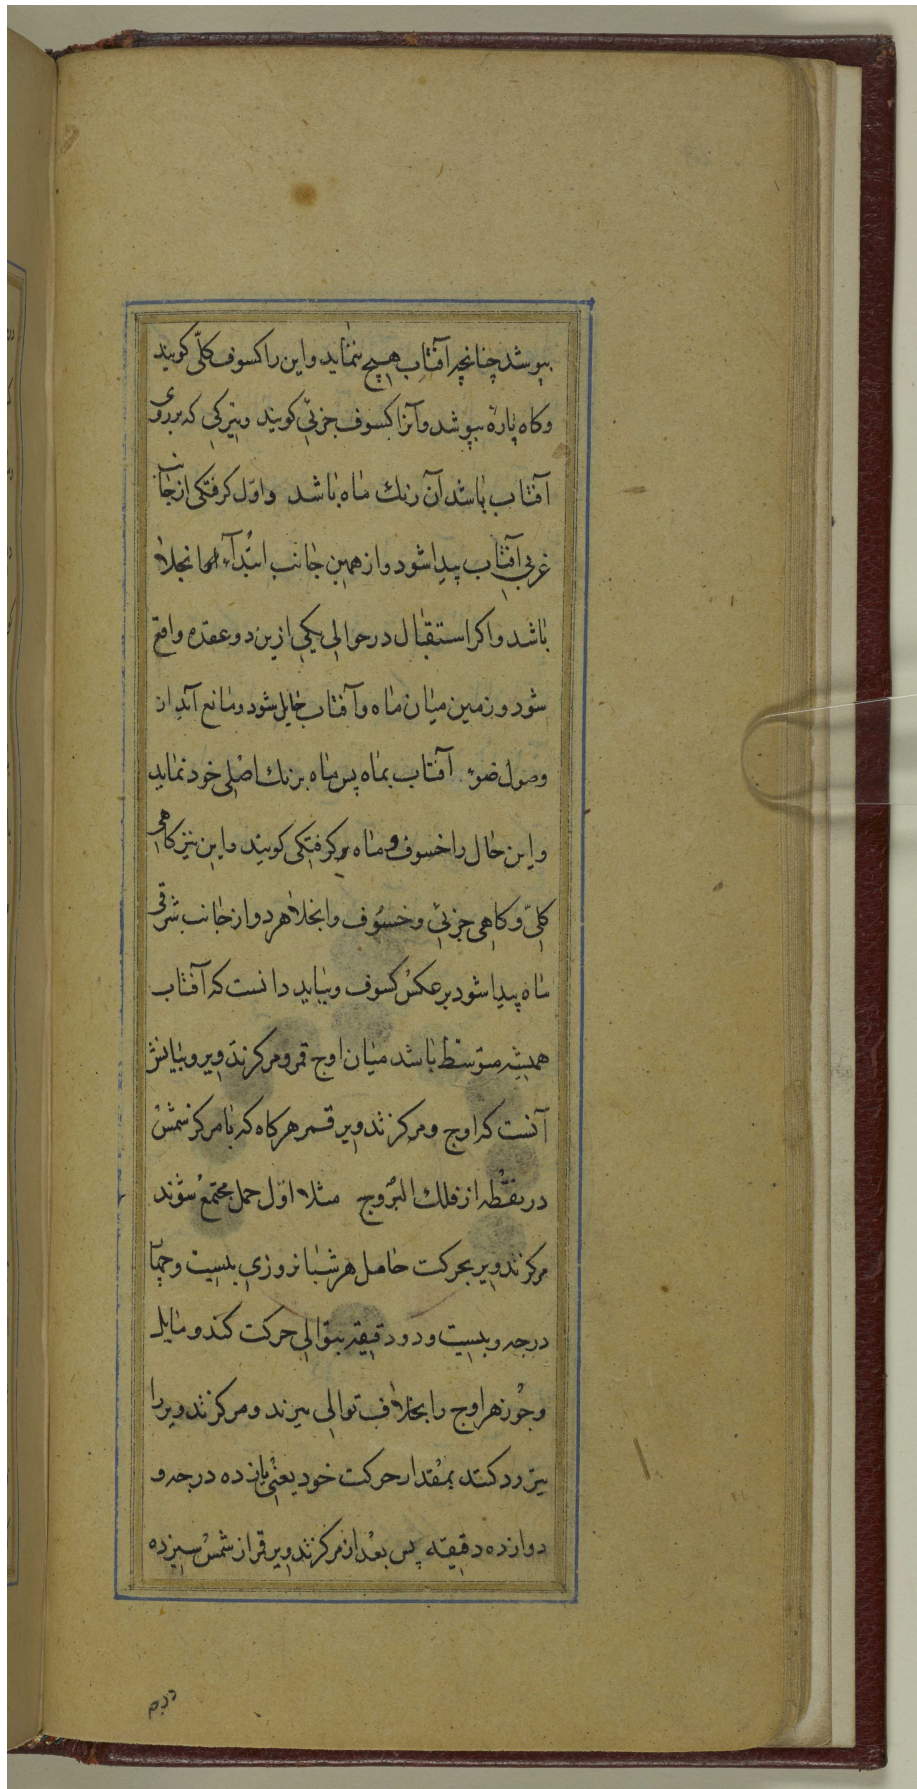 بپوشد چنانچه آفتاب هیچ ننماید و این را کسوف کلّی کویند
و کاه پارهٔ بپوشد و آنرا کسوف جزئی کویند و تیرکی که بر روی
آفتاب باشد آن رنك ماه باشد و اوّل کرفتکی از جانب
غربی آفتاب پیدا شود و از همین جانب ابتدآء انجلا
باشد و اکر استقبال در حوالی یکی ازین دو عقده واقع
شود و زمین میان ماه و آفتاب حایل شود و مانع آید از
وصول ضوء آفتاب بماه پس ماه برنك اصلی خود نماید
و این حال را خسوف و ماه کرفتکی کویند و این نیز کاهی
کلیّ و کاهی جزئی و خسوف و انجلا هر دو از جانب شرقی
ماه پیدا شود بر عکس کسوف و بباید دانست که آفتاب
همیشه متوسّط باشد میان اوج قمر و مرکز تدویر و بیانش
آنست که اوج و مرکز تدویر قمر هرکاه که با مرکز شمس
در نقطه از فلك البروج مثلا اوّل حمل مجتمع شوند
مرکز تدویر بحرکت حامل هر شبانروزی بیست و چهار
درجه و بیست و دو دقیقه بتوالی حرکت کند و مایل
و جوزهر اوج را بخلاف توالی میبرند و مرکز تدویر را
نیز رد کنند بمقدار حرکت خود یعنی یازده درجه و
دوازده دقیقه پس بعد از مرکز تدویر قمر از شمس سیزده
درجه